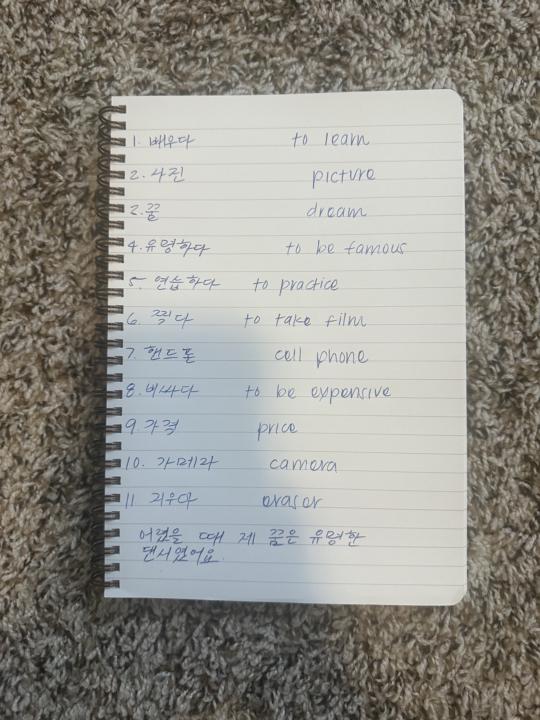 1. 배우다 to learn
2. 사진 picture
2. 꿈 dream
4. 유명하다 to be famous
5. 연습하다 to practice
6. 찍다 to take film
7. 핸드폰 cell phone
8. 비싸다 to be expensive
9 가격 price
10. 카메라 camera
11 지우다 eraser
어렸을 때 제 꿈은 유명한
댄서였어요.